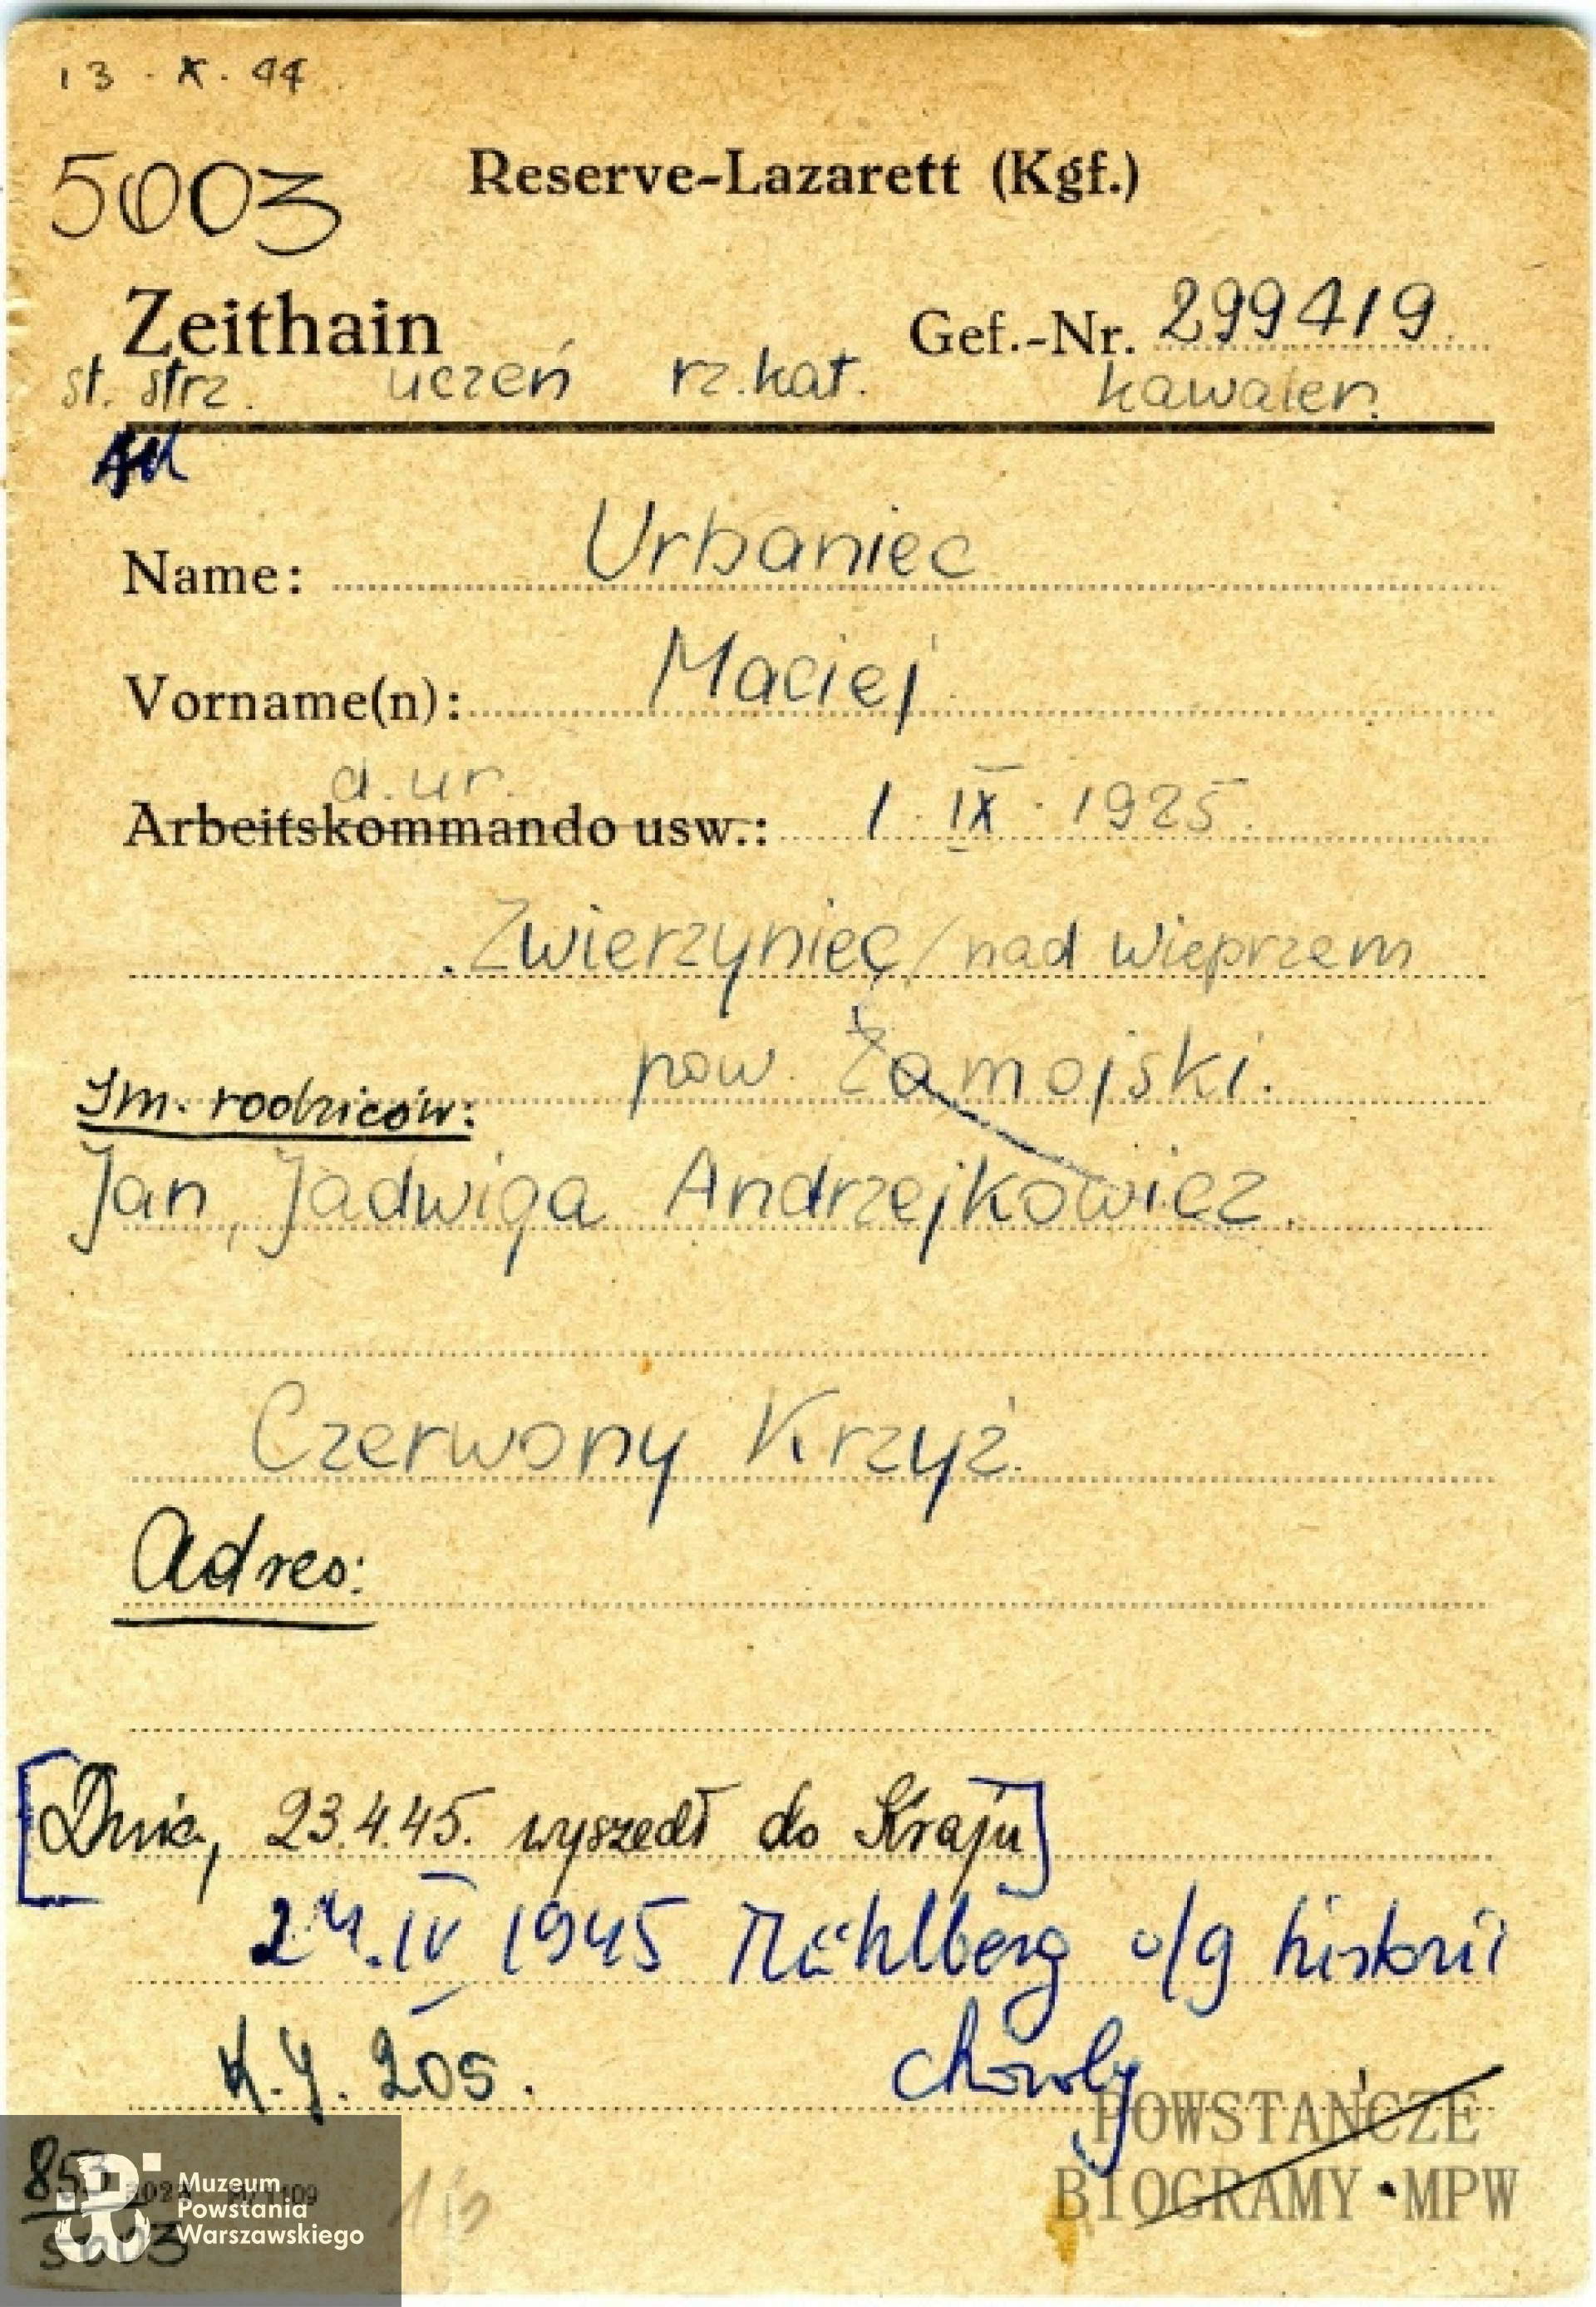 13.X.44
5003 Reserve-Lazarett (Kgf.)
Zeithain Gef.-Nr. 299419
st. strz. uczeń rz.kat. kawaler.
AK
Name: Urbaniec
Vorname(n): Maciej
d.ur.
Arbeitskommando usw.: 1.IX.1925.
Zwierzyniec/nad Wieprzem
pow. Zamojski.
Im. rodziców:
Jan, Jadwiga Andrzejkowicz.
Czerwony Krzyż.
Adres:
[Dnia, 23.4.45. wyszedł do Kraju]
24.IV 1945 Mühlberg w/g historii
choroby
K.J. 205.
POWSTAŃCZE
BIOGRAMY MPW
853
5003
Muzeum
Powstania
Warszawskiego